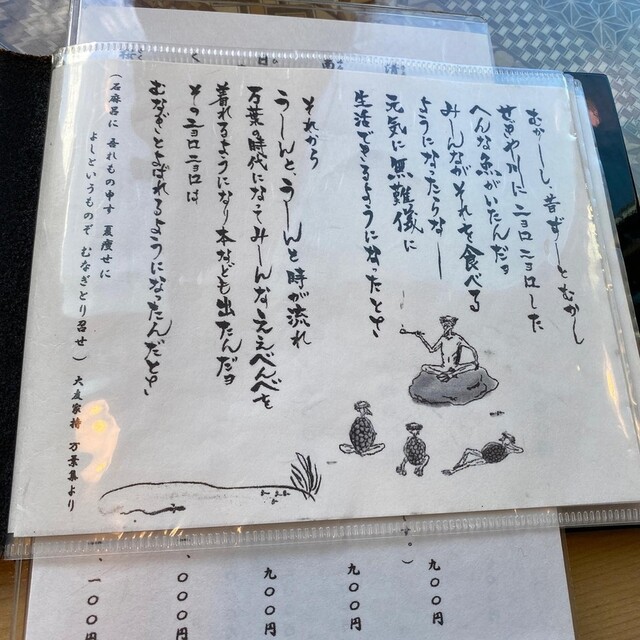 むかーしし、昔ずーーとむかし
せきや川にニョロニョロした
へんな魚がいたんだヨ
みーんながそれを食べる
ようになったらなー
元気に無難儀に
生活できるようになったとさ
それから
うーんと、うーんと時が流れ
万葉の時代になってみーんなええべんべを
着れるようになり本なども出たんだヨ
そのニョロニョロは
むなぎとよばれるようになったんだとさ
(石麻呂に 吾れもの申す 夏痩せに
よしというものぞ むなぎとり召せ) 大友家持 万葉集より
九〇〇円
九〇〇円
九〇〇円
〇〇〇円
一〇〇円